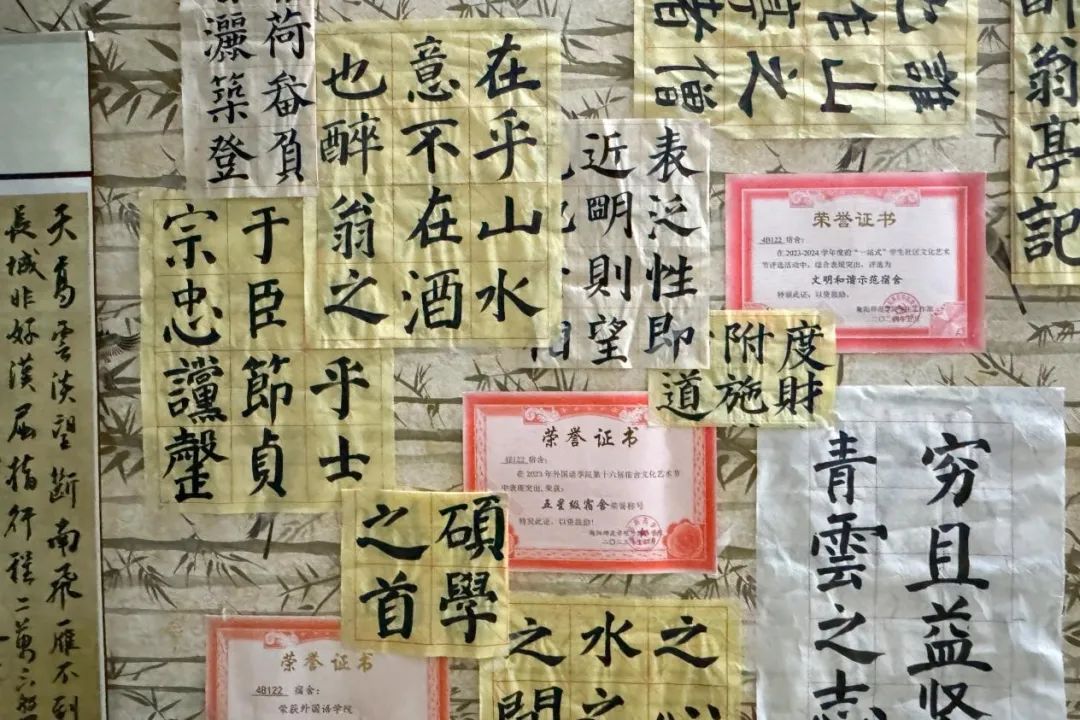 荷畚負
灑築登
在乎山水
意不在酒
也醉翁之
乎士
于臣節貞
宗忠讜罄
表泛性即
近明則望
翁亭記
荣誉证书
4B122 宿舍:
在2023-2024学年度的“一站式”学生社区文化艺术
节评选活动中，综合表现突出，评选为
文明和谐示范宿舍
特颁此证，以资鼓励。
度財
附施
道
荣誉证书
4B122 宿舍:
在2023年外国语学院第十六届宿舍文化艺术节
中表现突出,荣获:
五星级宿舍荣誉称号
特发此证，以资鼓励!
碩學
之首
穷且益坚
青雲之志
之
水之
之間
荣誉证书
4B122 宿舍:
荣获外国语学院
天高雲淡望斷南飛雁不到
長城非好漢屈指行程二萬六